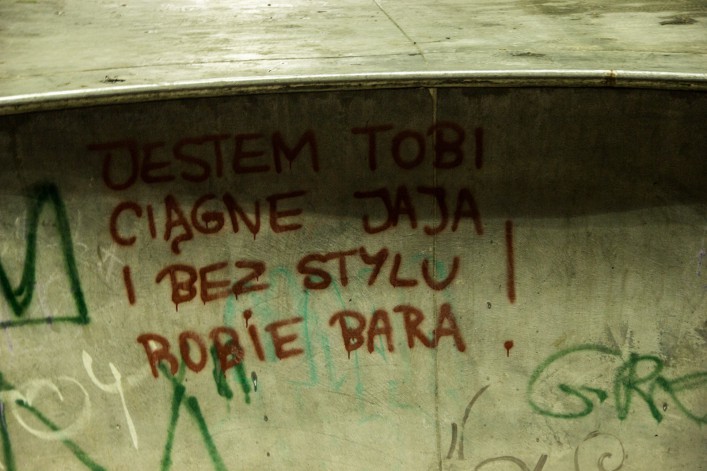 JESTEM TOBI
CIĄGNE JAJA
I BEZ STYLU !
ROBIE BARA